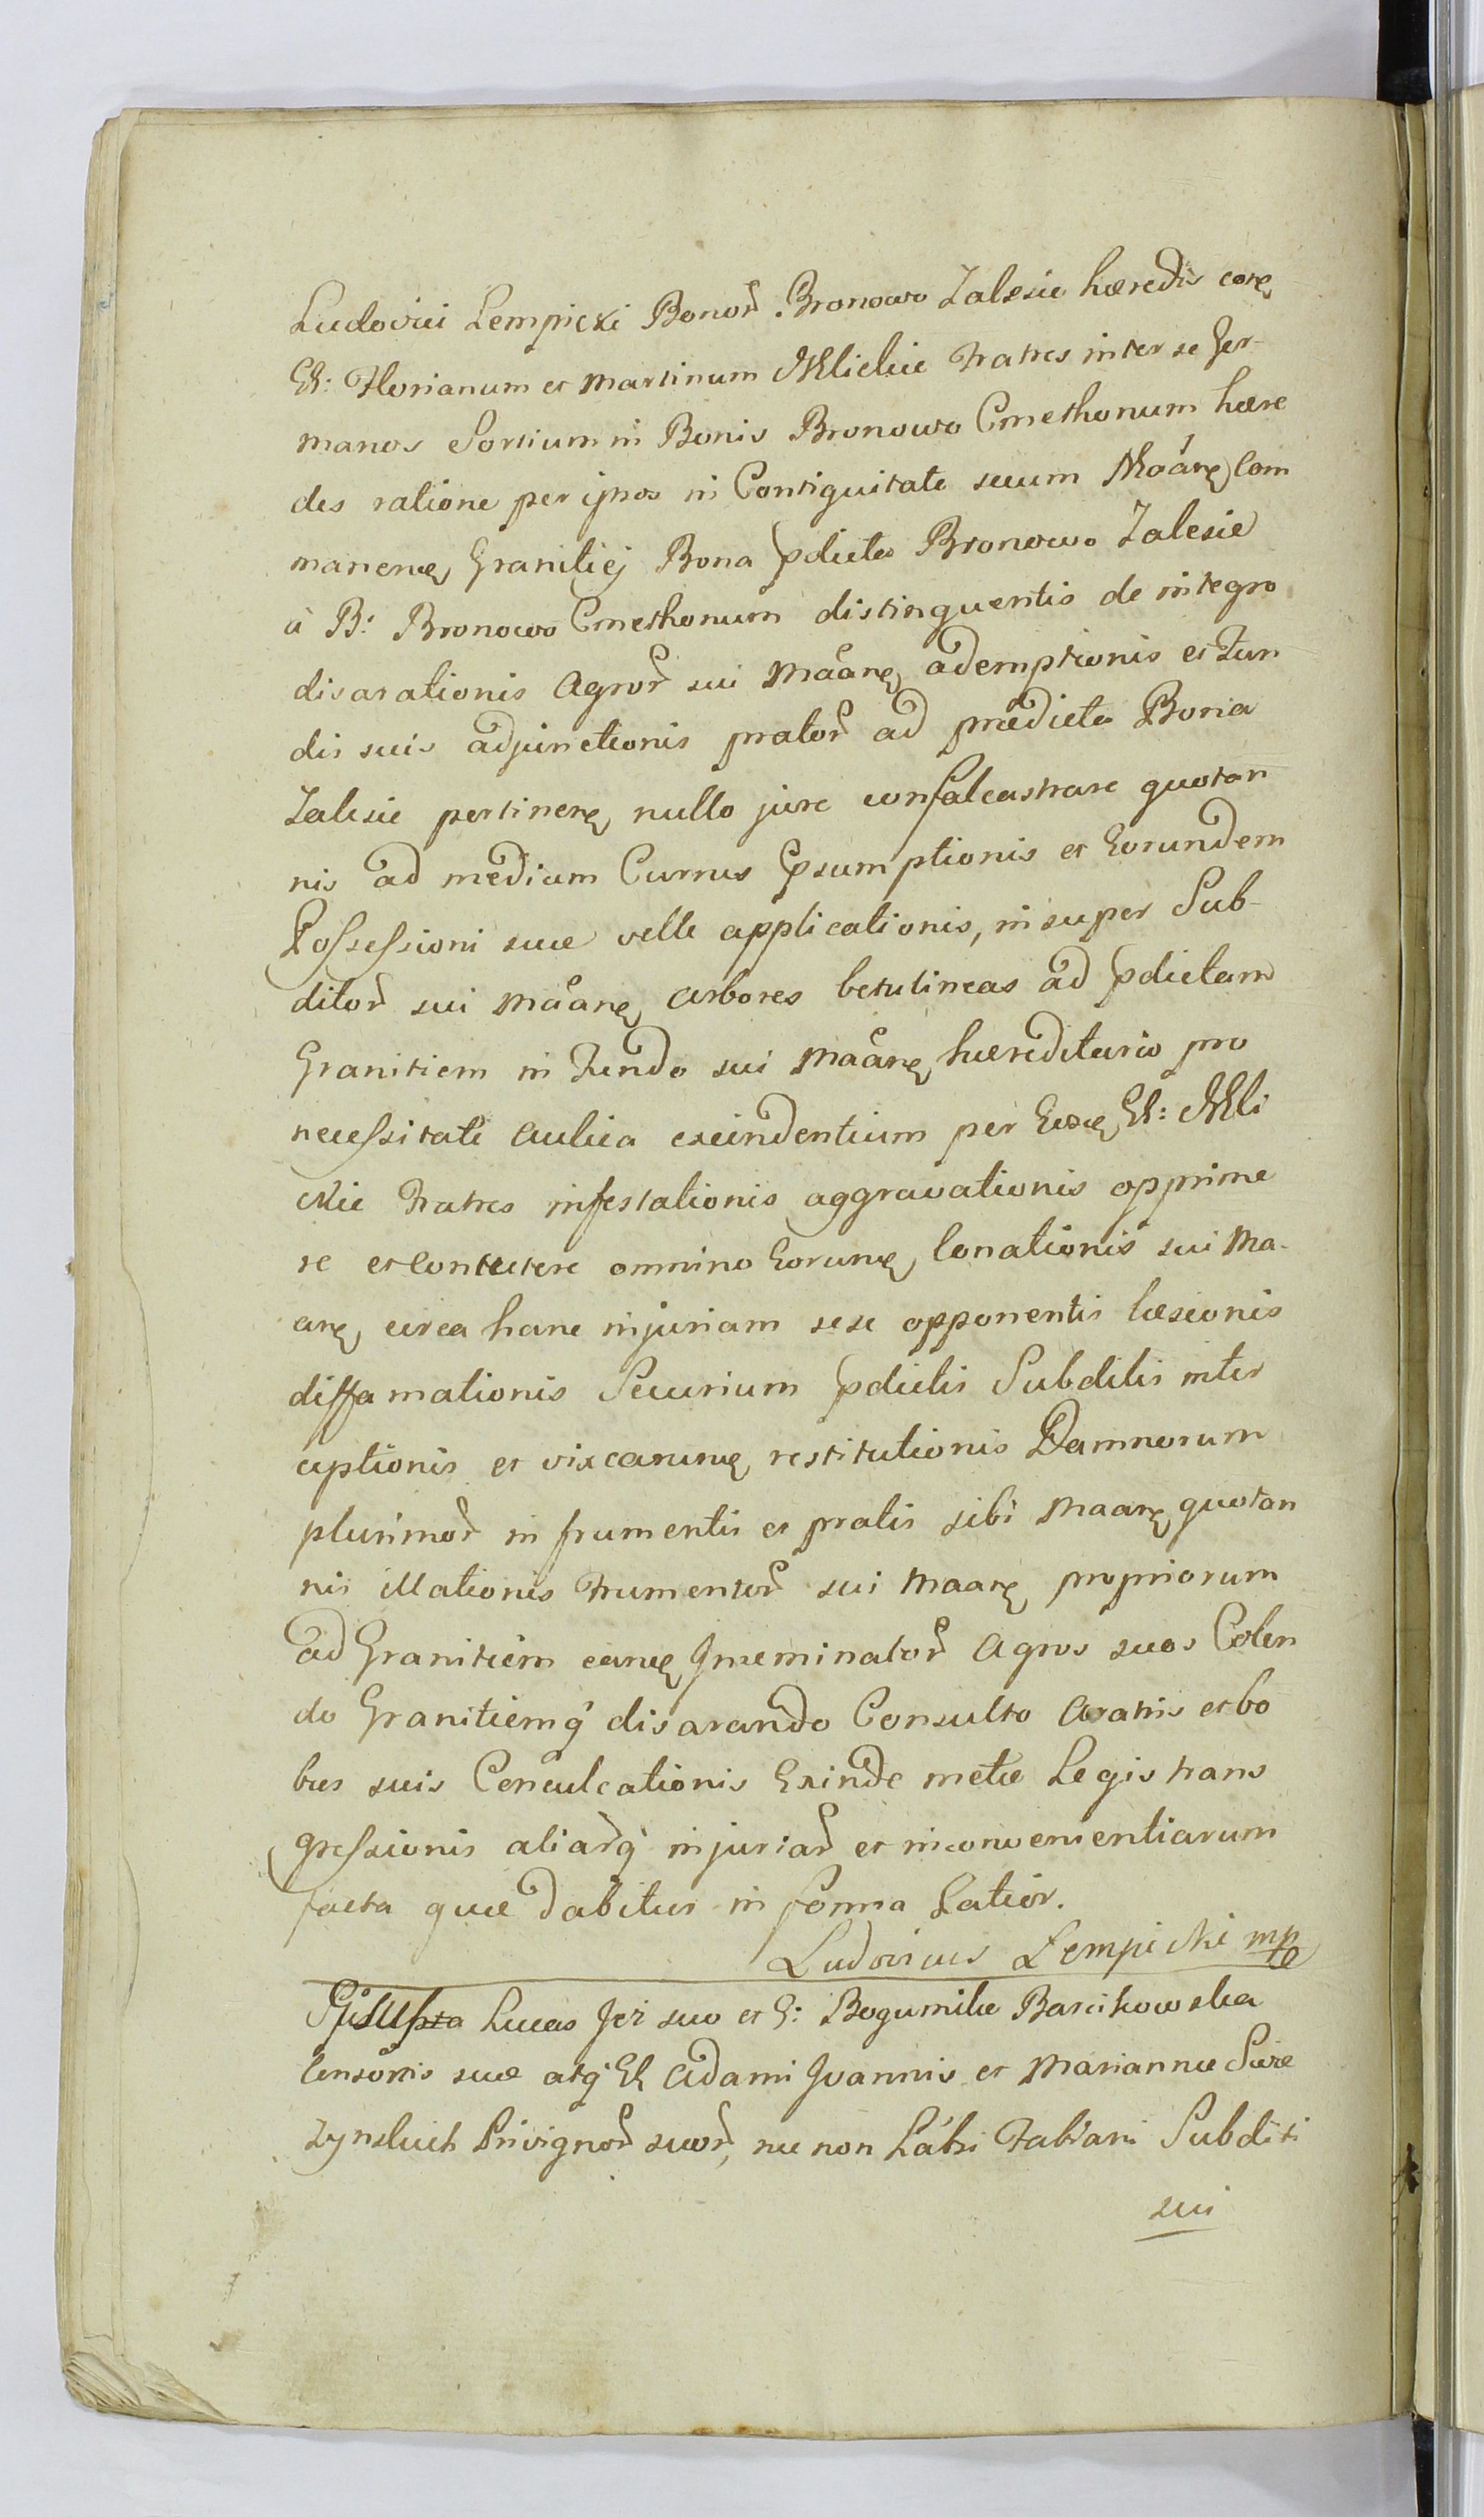 Ludovici Lempicki Bonor̃ Bronowo Zalesie hæredis corę
GG: Florianum et Martinum Milickie Fratres inter se Ger-
manos Sortium in Bonis Bronowo Cmethonum hære
des ratione per ipsos in Contiguitate secum Moáre Com
manenę Granitiej Bona pdicta Bronowo Zalesie
à B: Bronowo Cmethonum distinguentis de integro
disarationis Agror̃ sui Máanę ademptionis et Fun
dis suis adjunctionis prator̃ ad prædicta Bona
Zalesie pertinenę nullo jure confalcastrare quotan
nis ad medium Currus psumptionis et Eorundem
Possessioni suæ velle applicationis, insuper Sub-
ditor̃ sui Máanę arbores betulineas ad pdictam
Granitiem in Fundo sui Máanę hæreditario pro
necessitate aulica exindentium per Eosdę GG: Mli
ckie Fratres infestationis aggravationis opprime
re et contutere omnino Eorunę Conationis sui Ma-
anę circa hanc injuriam sese opponentis læsionis
diffamationis Securium pdictis Subditis inter
ceptionis et vix earunę restitutionis Damnorum
plurimor̃ in frumentis et pratis sibi Maanę quotan
nis illationis Frumentor̃ sui Maanę propriorum
ad Granitiem eanę Inseminator̃ Agros suos Colen
do Granitiemq̃ disarando Consulto Aratris et bo
bus suis Conculcationis Exinde metæ Legis trans
gressionis aliarq̃ injuriar̃ et inconvenientiarum
facta quæ dabitur in forma Latior.
Ludovicus Lempicki mp
Lucas suo et G: Bogumilæ Barcikowska
Consortis suæ atq̃ GG Adami Joannis et Mariannæ Swie
zynskich Privignor̃ suor̃, nec non Lábi Fabiani Subditi
sui